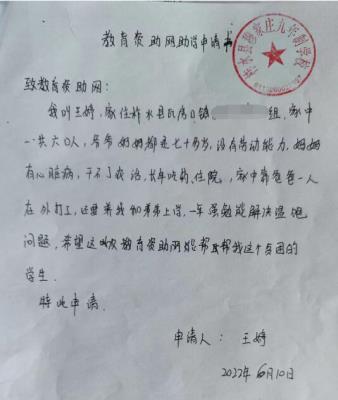 教育资助网助学申请书
柞水县穆家庄九年制学校
致教育资助网：
我叫王婷，家住柞水县瓦房口镇 组，家中
一共六口人，爷爷奶奶都是七十多岁，没有劳动能力，妈妈
有心脏病，干不了重活，长年吃药、住院，家中靠爸爸一人
在外打工，还要养我和弟弟上学，一年强勉能解决温饱
问题，希望这次教育资助网能帮助帮我这个贫困的
学生.
特此申请.
申请人：王婷
2022年6月10日